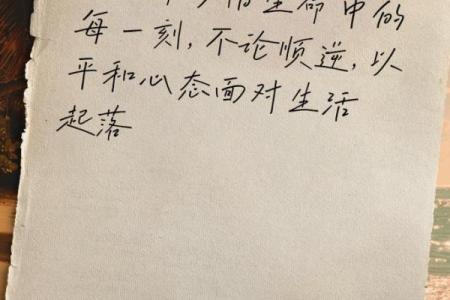 惜生命中的
每一刻，不论顺逆，以
平和心态面对生活
起落